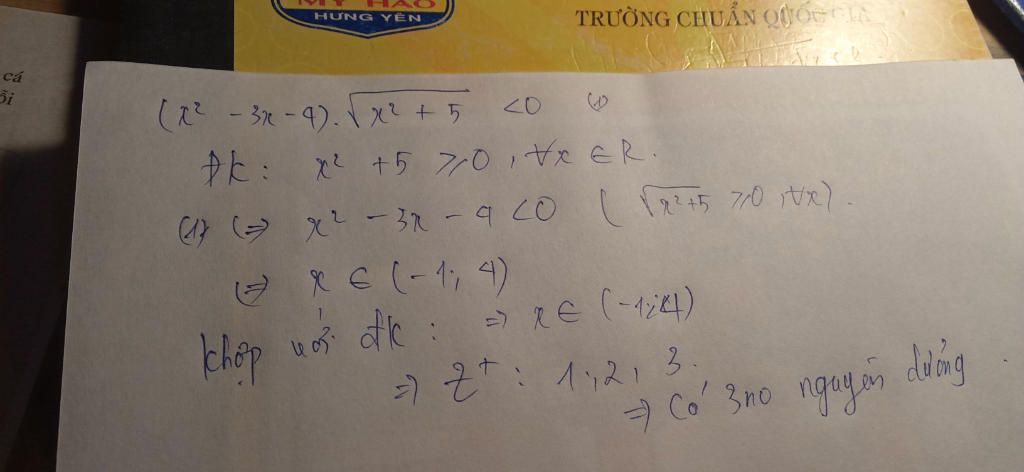 MỸ HÀO
HƯNG YÊN
TRƯỜNG CHUẨN QUỐC GIA
cá
ỗi
(x² - 3x - 4).√(x² + 5) < 0 (1)
ĐK: x² + 5 ≥ 0, ∀x ∈ R.
(1) (=> x² - 3x - 4 < 0 ( √(x²+5) ≥ 0, ∀x).
(=> x ∈ (-1; 4)
khớp với đk: => x ∈ (-1; 4)
=> Z⁺: 1; 2, 3.
=> Có 3no nguyên dương.